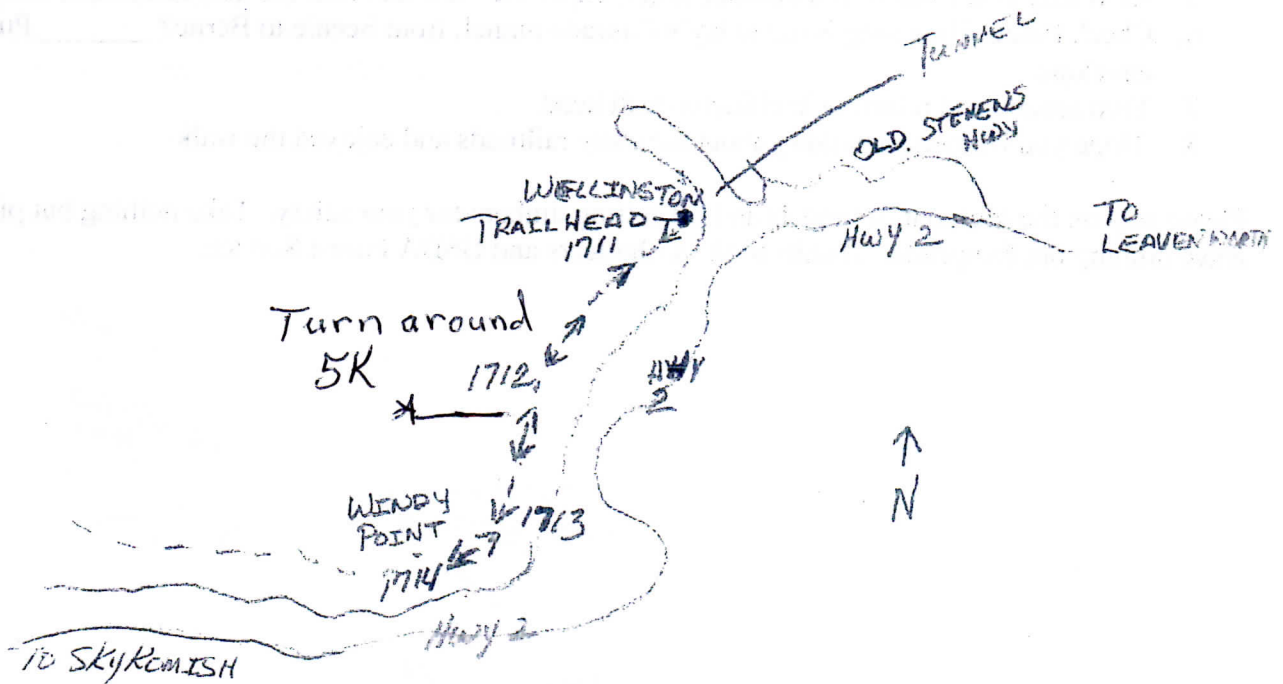 TUNNEL
OLD. STEVENS
HWY
WELLINGTON
TRAILHEAD
1711
HWY 2
TO
LEAVENWORTH
Turn around
5K
1712
HWY
2
N
WINDY
POINT
1713
1714
HWY 2
TO SKYKOMISH